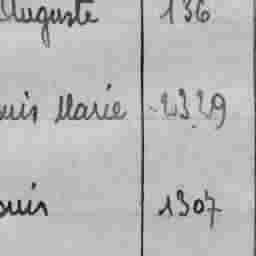 Auguste 136
ouis Marie 2329
ouis 1307